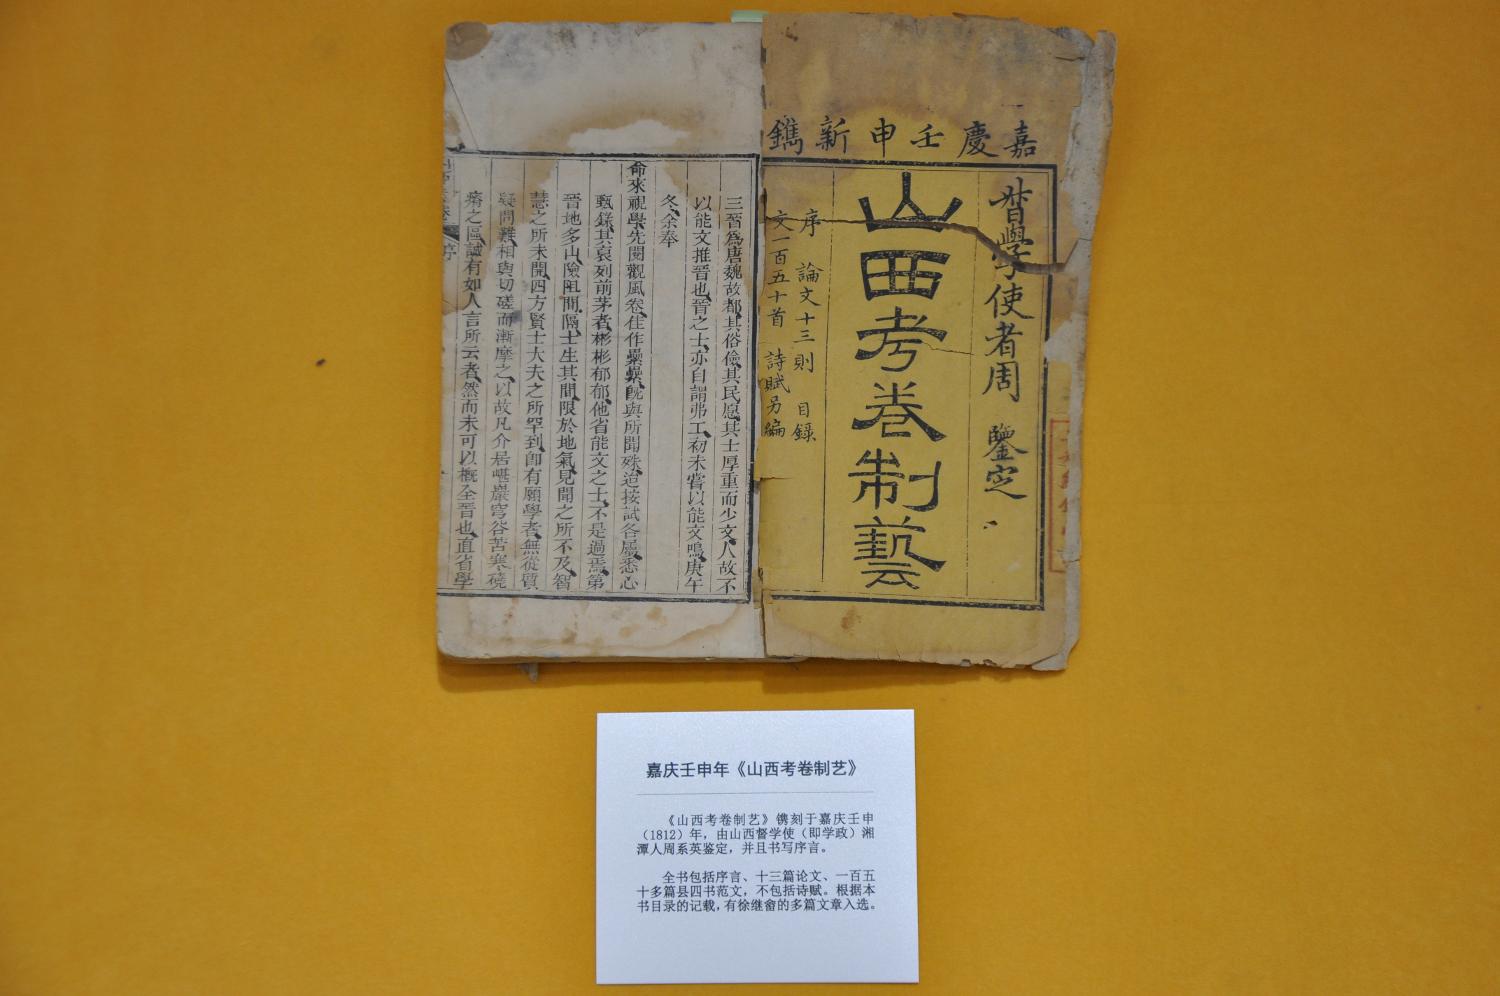 嘉慶壬申新鐫
督學使者周 鑒定
山西考卷制藝
序 論文十三則 目錄
文一百五十首 詩賦另編
三晉爲唐魏故都其俗儉其民愿其士厚重而少文人故不
以能文推晉也晉之士亦自謂弗工初未嘗以能文鳴庚午
冬余奉
命來視學先閱觀風卷佳作纍纍旣與所聞殊迨按試各屬悉心
甄錄其裒列前茅者彬彬郁郁他省能文之士不是過焉第
晉地多山險阻間隔士生其間限於地氣見聞之所不及智
慧之所未開四方賢士大夫之所罕到卽有願學者無從質
疑問難相與切磋而漸摩之以故凡介居嵁巖窮谷苦寒磽
瘠之區誠有如人言所云者然而未可以概全晉也直省學
嘉庆壬申年《山西考卷制艺》
《山西考卷制艺》镌刻于嘉庆壬申
（1812）年，由山西督学使（即学政）湘
潭人周系英鉴定，并且书写序言。
全书包括序言、十三篇论文、一百五
十多篇县四书范文，不包括诗赋。根据本
书目录的记载，有徐继畬的多篇文章入选。